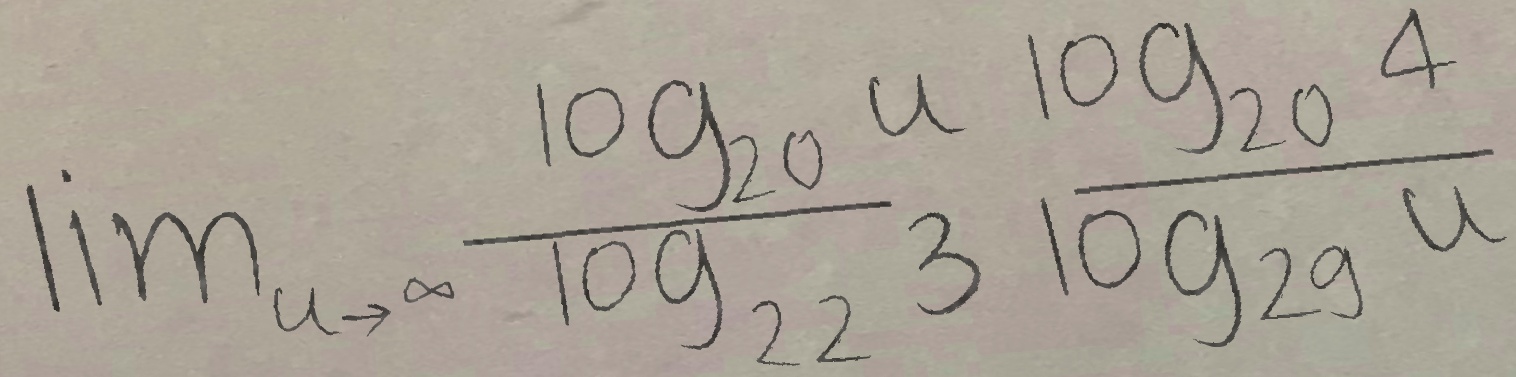 \lim_{u \to \infty} \frac{\log_{20} u}{\log_{22} 3} \frac{\log_{20} 4}{\log_{29} u}